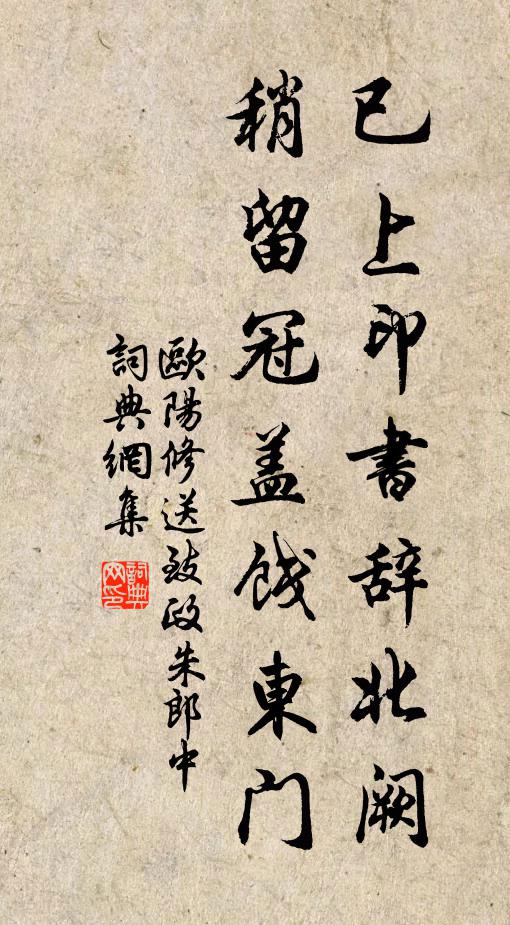 已上印書辞北闕
稍留冠盖餞東門
歐陽修送致政朱郎中
詞典網集
詞典網印